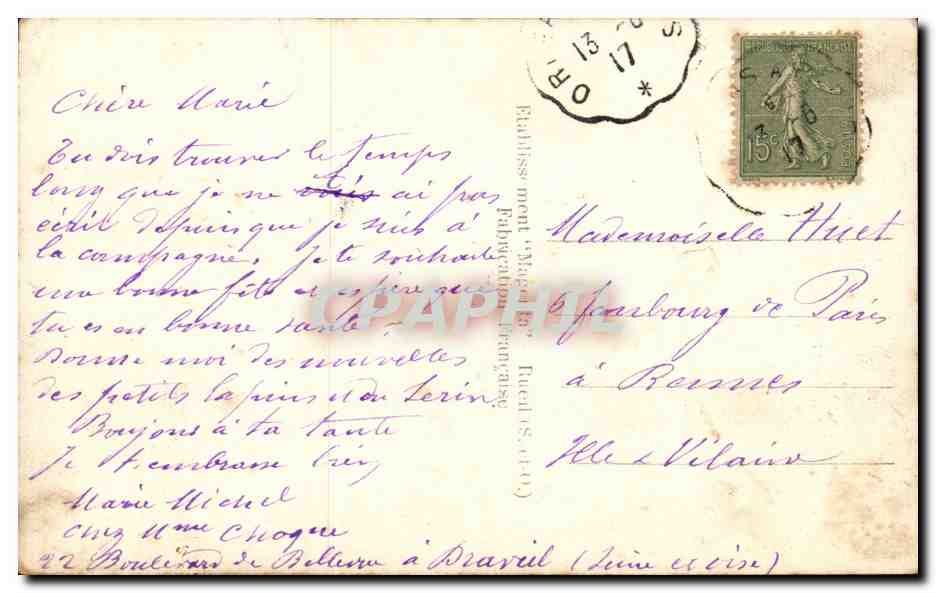 Chère Marie
Tu dois trouver le temps
long que je ne t'ai pas
écrit depuis que je suis à
la campagne. Je te souhaite
une bonne fête et espère que
tu es en bonne santé
Donne moi des nouvelles
des petits lapins et du Serin
Boujons à ta tante
Je t'embrasse
Marie Michel
chez Mme Choque
22 Boulevard de Bellevue à Draveil (Seine et oise)
Etablissement "Magenta" Rueil (S.-et-O.)
Fabrication Française
13
17
S
OR
*
REPUBLIQUE FRANÇAISE
15c
POSTES
Mademoiselle Huet
6 faubourg de Paris
à Rennes
Ille & Vilaine
CPAPHIL